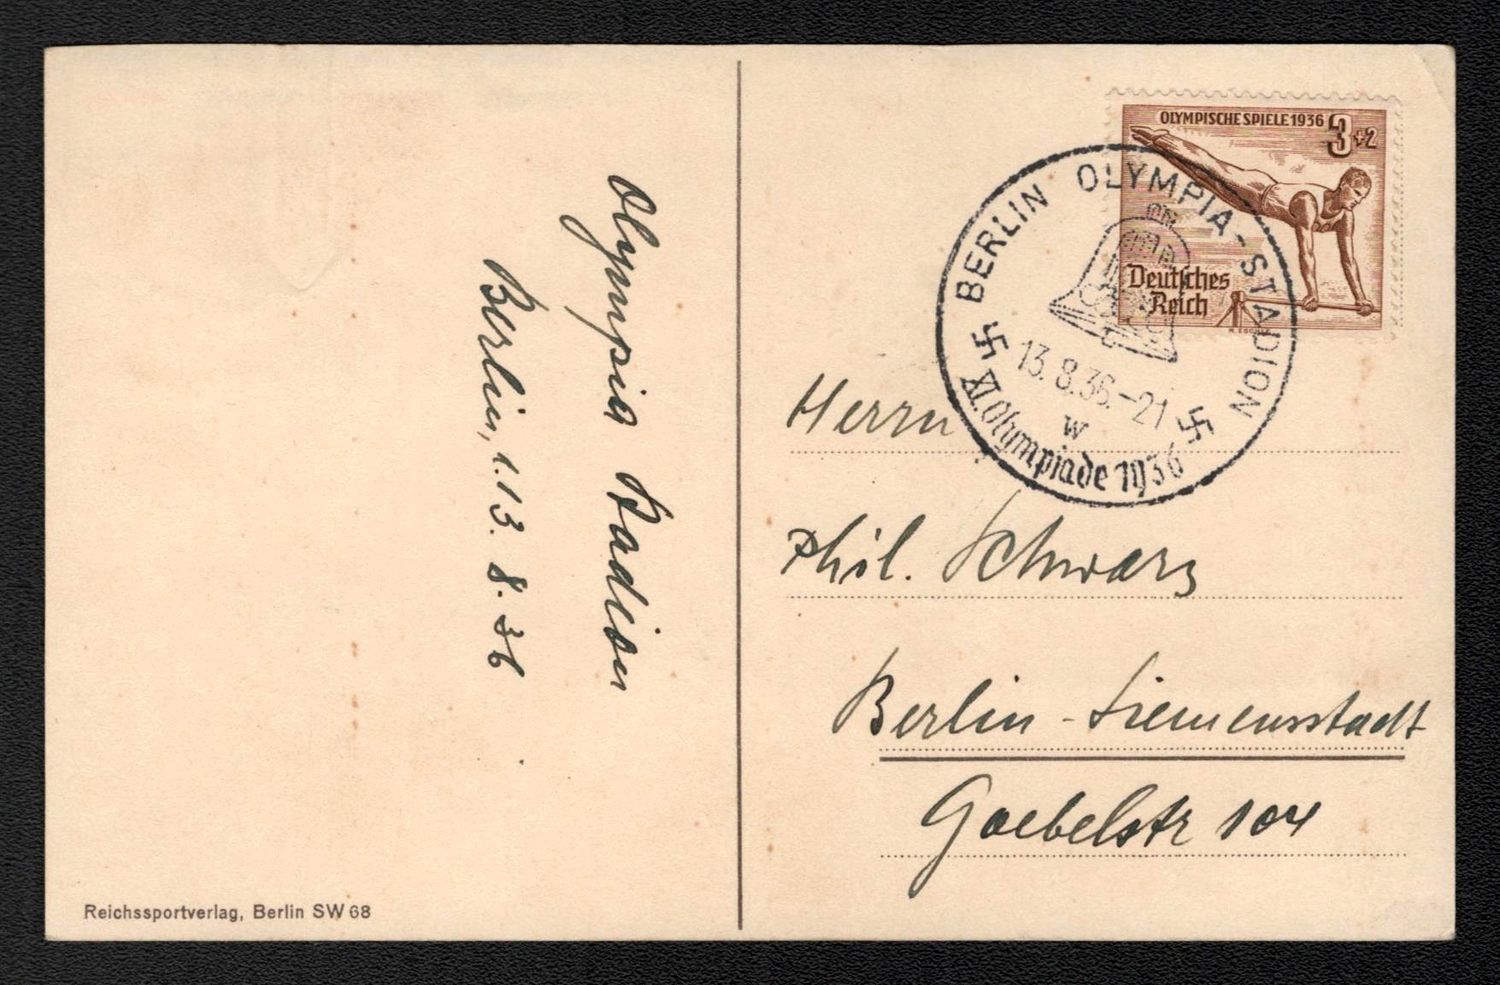 Olympia Stadion
Berlin, 1.13. 8. 36
Reichssportverlag, Berlin SW 68
OLYMPISCHE SPIELE 1936 3+2
Deutsches
Reich
BERLIN OLYMPIA-STADION
13.8.36.-21
w
XI. Olympiade 1936
Herrn
Phil. Schwarz
Berlin-Siemensstadt
Goebelstr 104